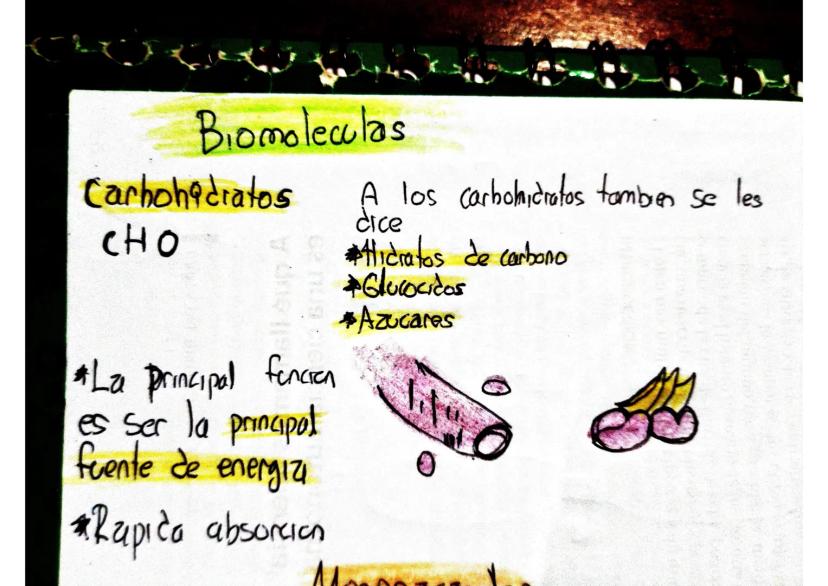 Biomoleculas
Carbohidratos
CHO
A los carbohidratos tambien se les
dice
*Hidratos de carbono
*Glucocidos
*Azucares
*La principal funcion
es ser la principal
fuente de energia
*Rapida absorcion